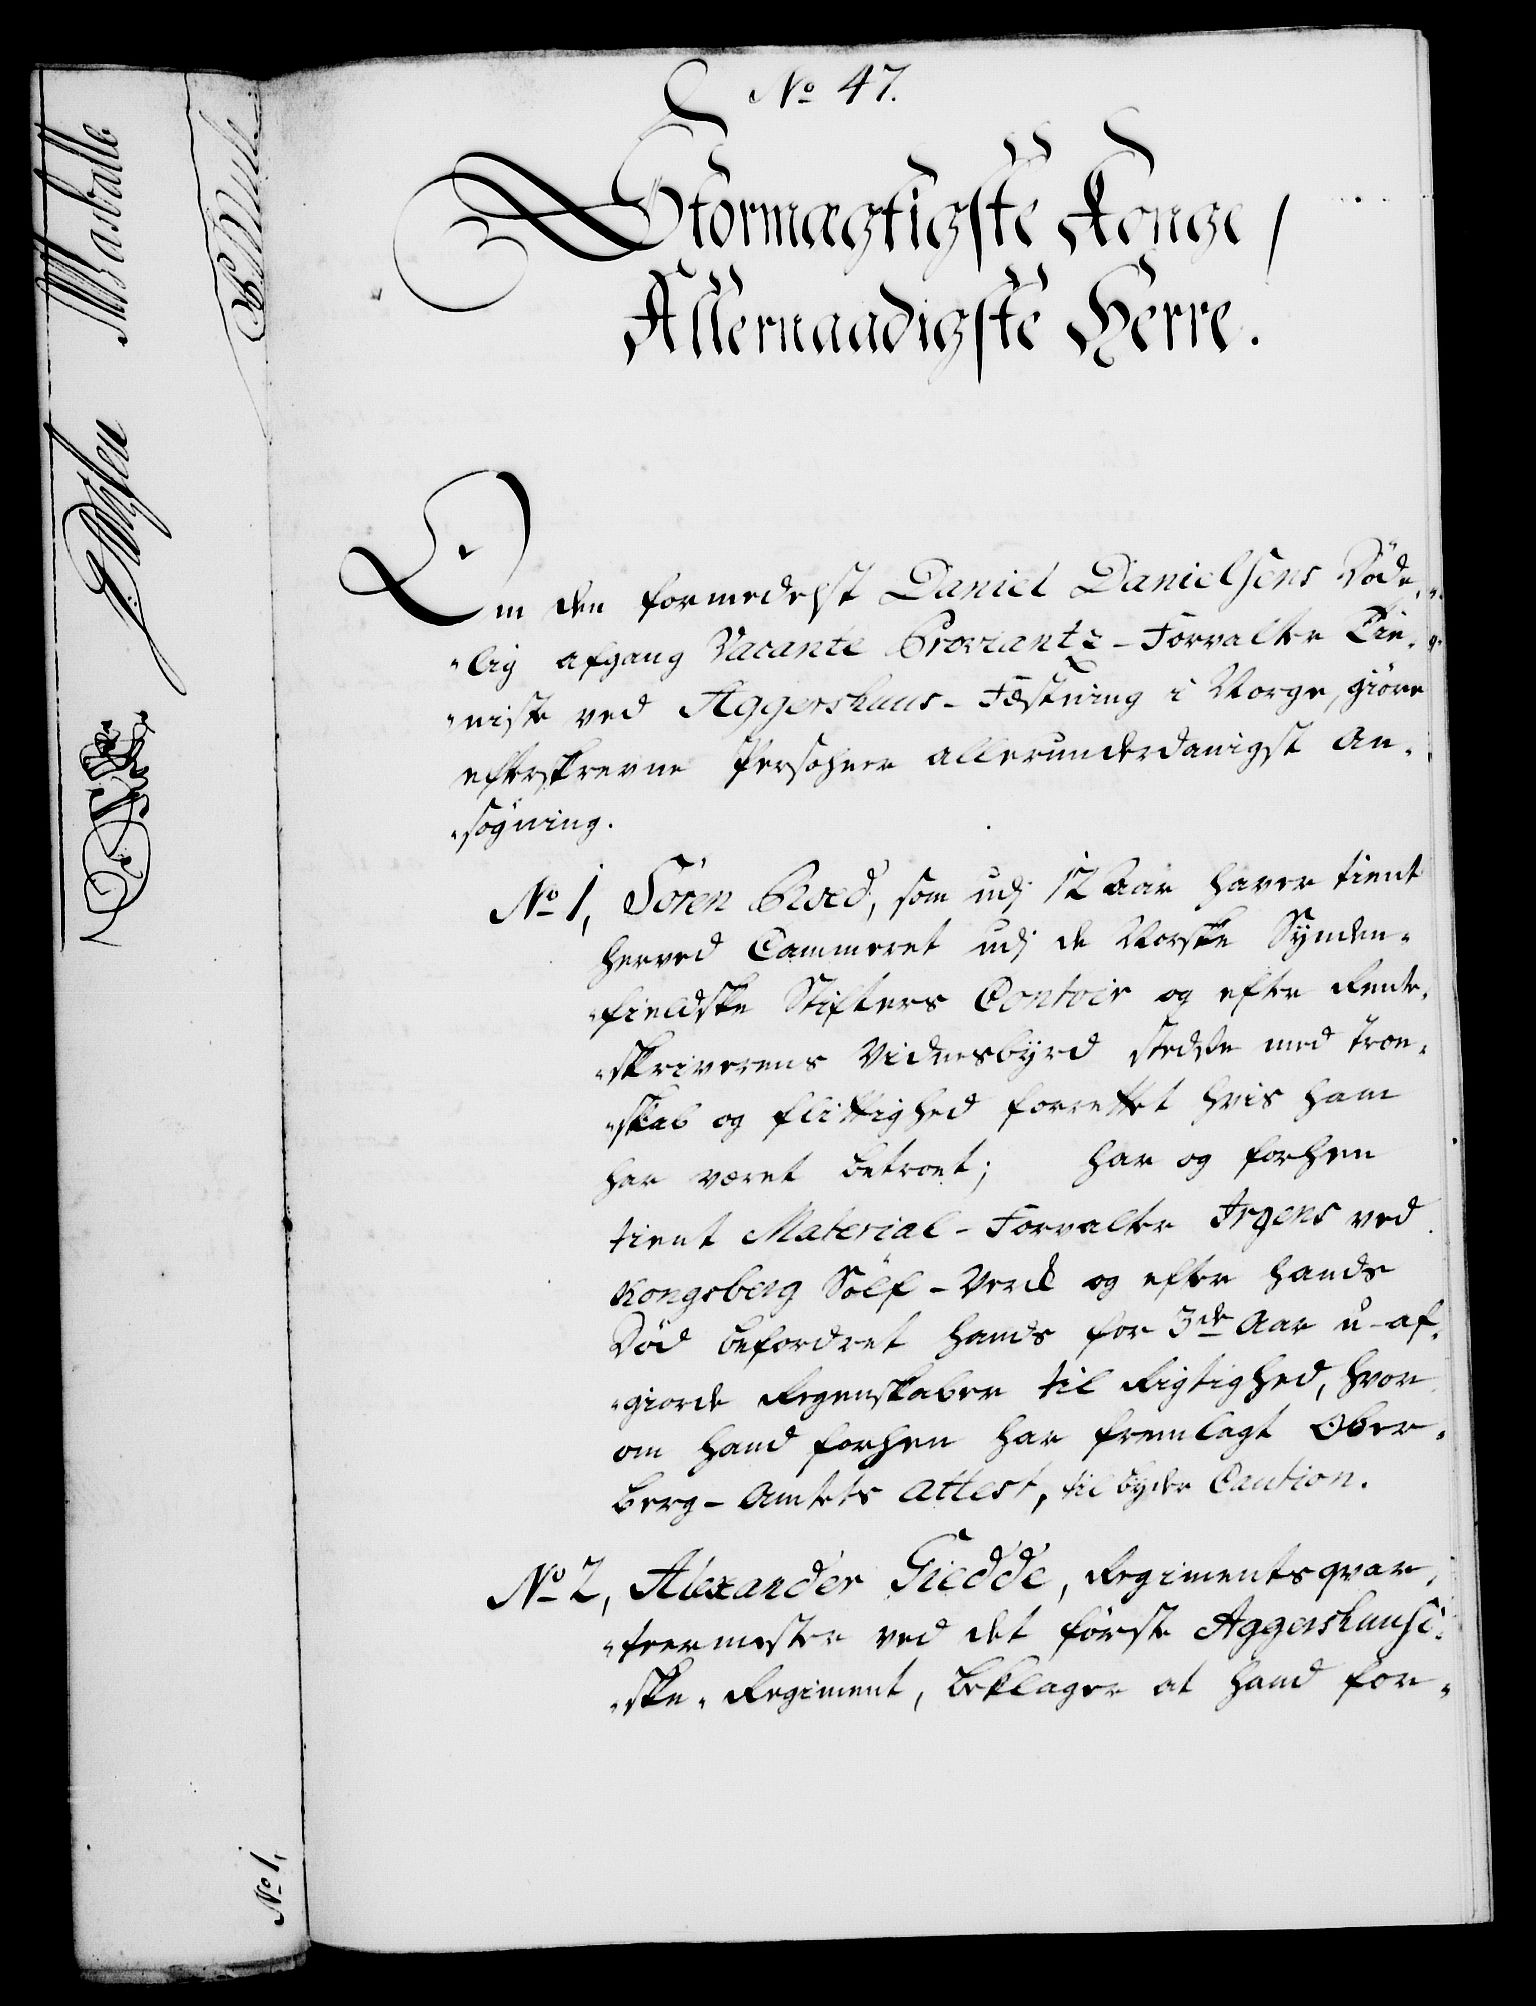 No 47.
Stormægtigste Konge /
Allernaadigste Herre.
Om den formedelst Daniel Danielsens Döde-
-lig afgang Vacante Proviantz-Forvalter Tie-
-niste ved Aggershuus-Fæstning i Norge, giöre
efterskrevne Persohner allerunderdanigst An-
-søgning.
No 1, Sören Qved, som udj 12 Aar haver tient
herved Cammeret udj de Norske Synden-
-fieldske Stifters Contoir og efter Rente-
-skriverens Vidnesbyrd stedse med troe-
-skab og flittighed forrettet hvis ham
har været betroet; har og forhen
tient Material-Forvalter Irgens ved
Kongsberg Sölf-Verk og efter hands
Död befordret hands for 3de Aar u-af-
-giorde Regenskaber til Rigtighed, hvor
om hand forhen har fremlagt Ober-
berg-Amtets Attest, tilbyder Caution.
No 2, Alexander Giedde, Regimentsqvar-
-teermester ved det første Aggershuusi-
-ske Regiment, beklager at hand for-
No 1,